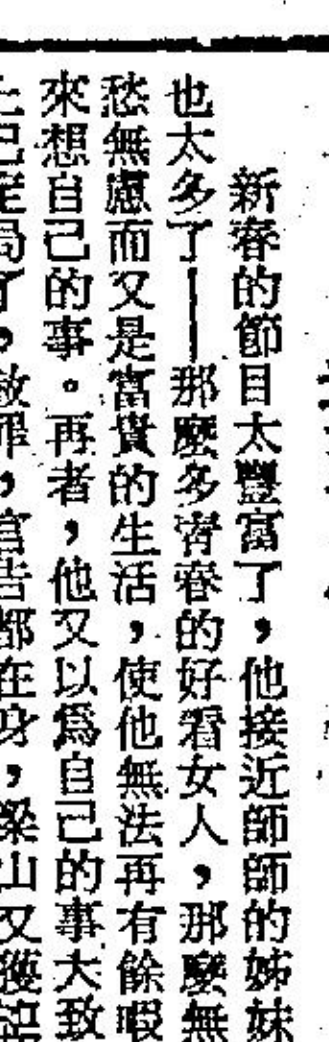 新春的節目太豐富了，他接近師師的姊妹
也太多了——那麼多青春的好看女人，那麼無
愁無慮而又是富貴的生活，使他無法再有餘暇
來想自己的事。再者，他又以爲自己的事大致
上已定局了，赦罪，官告都在身，梁山又獲詔